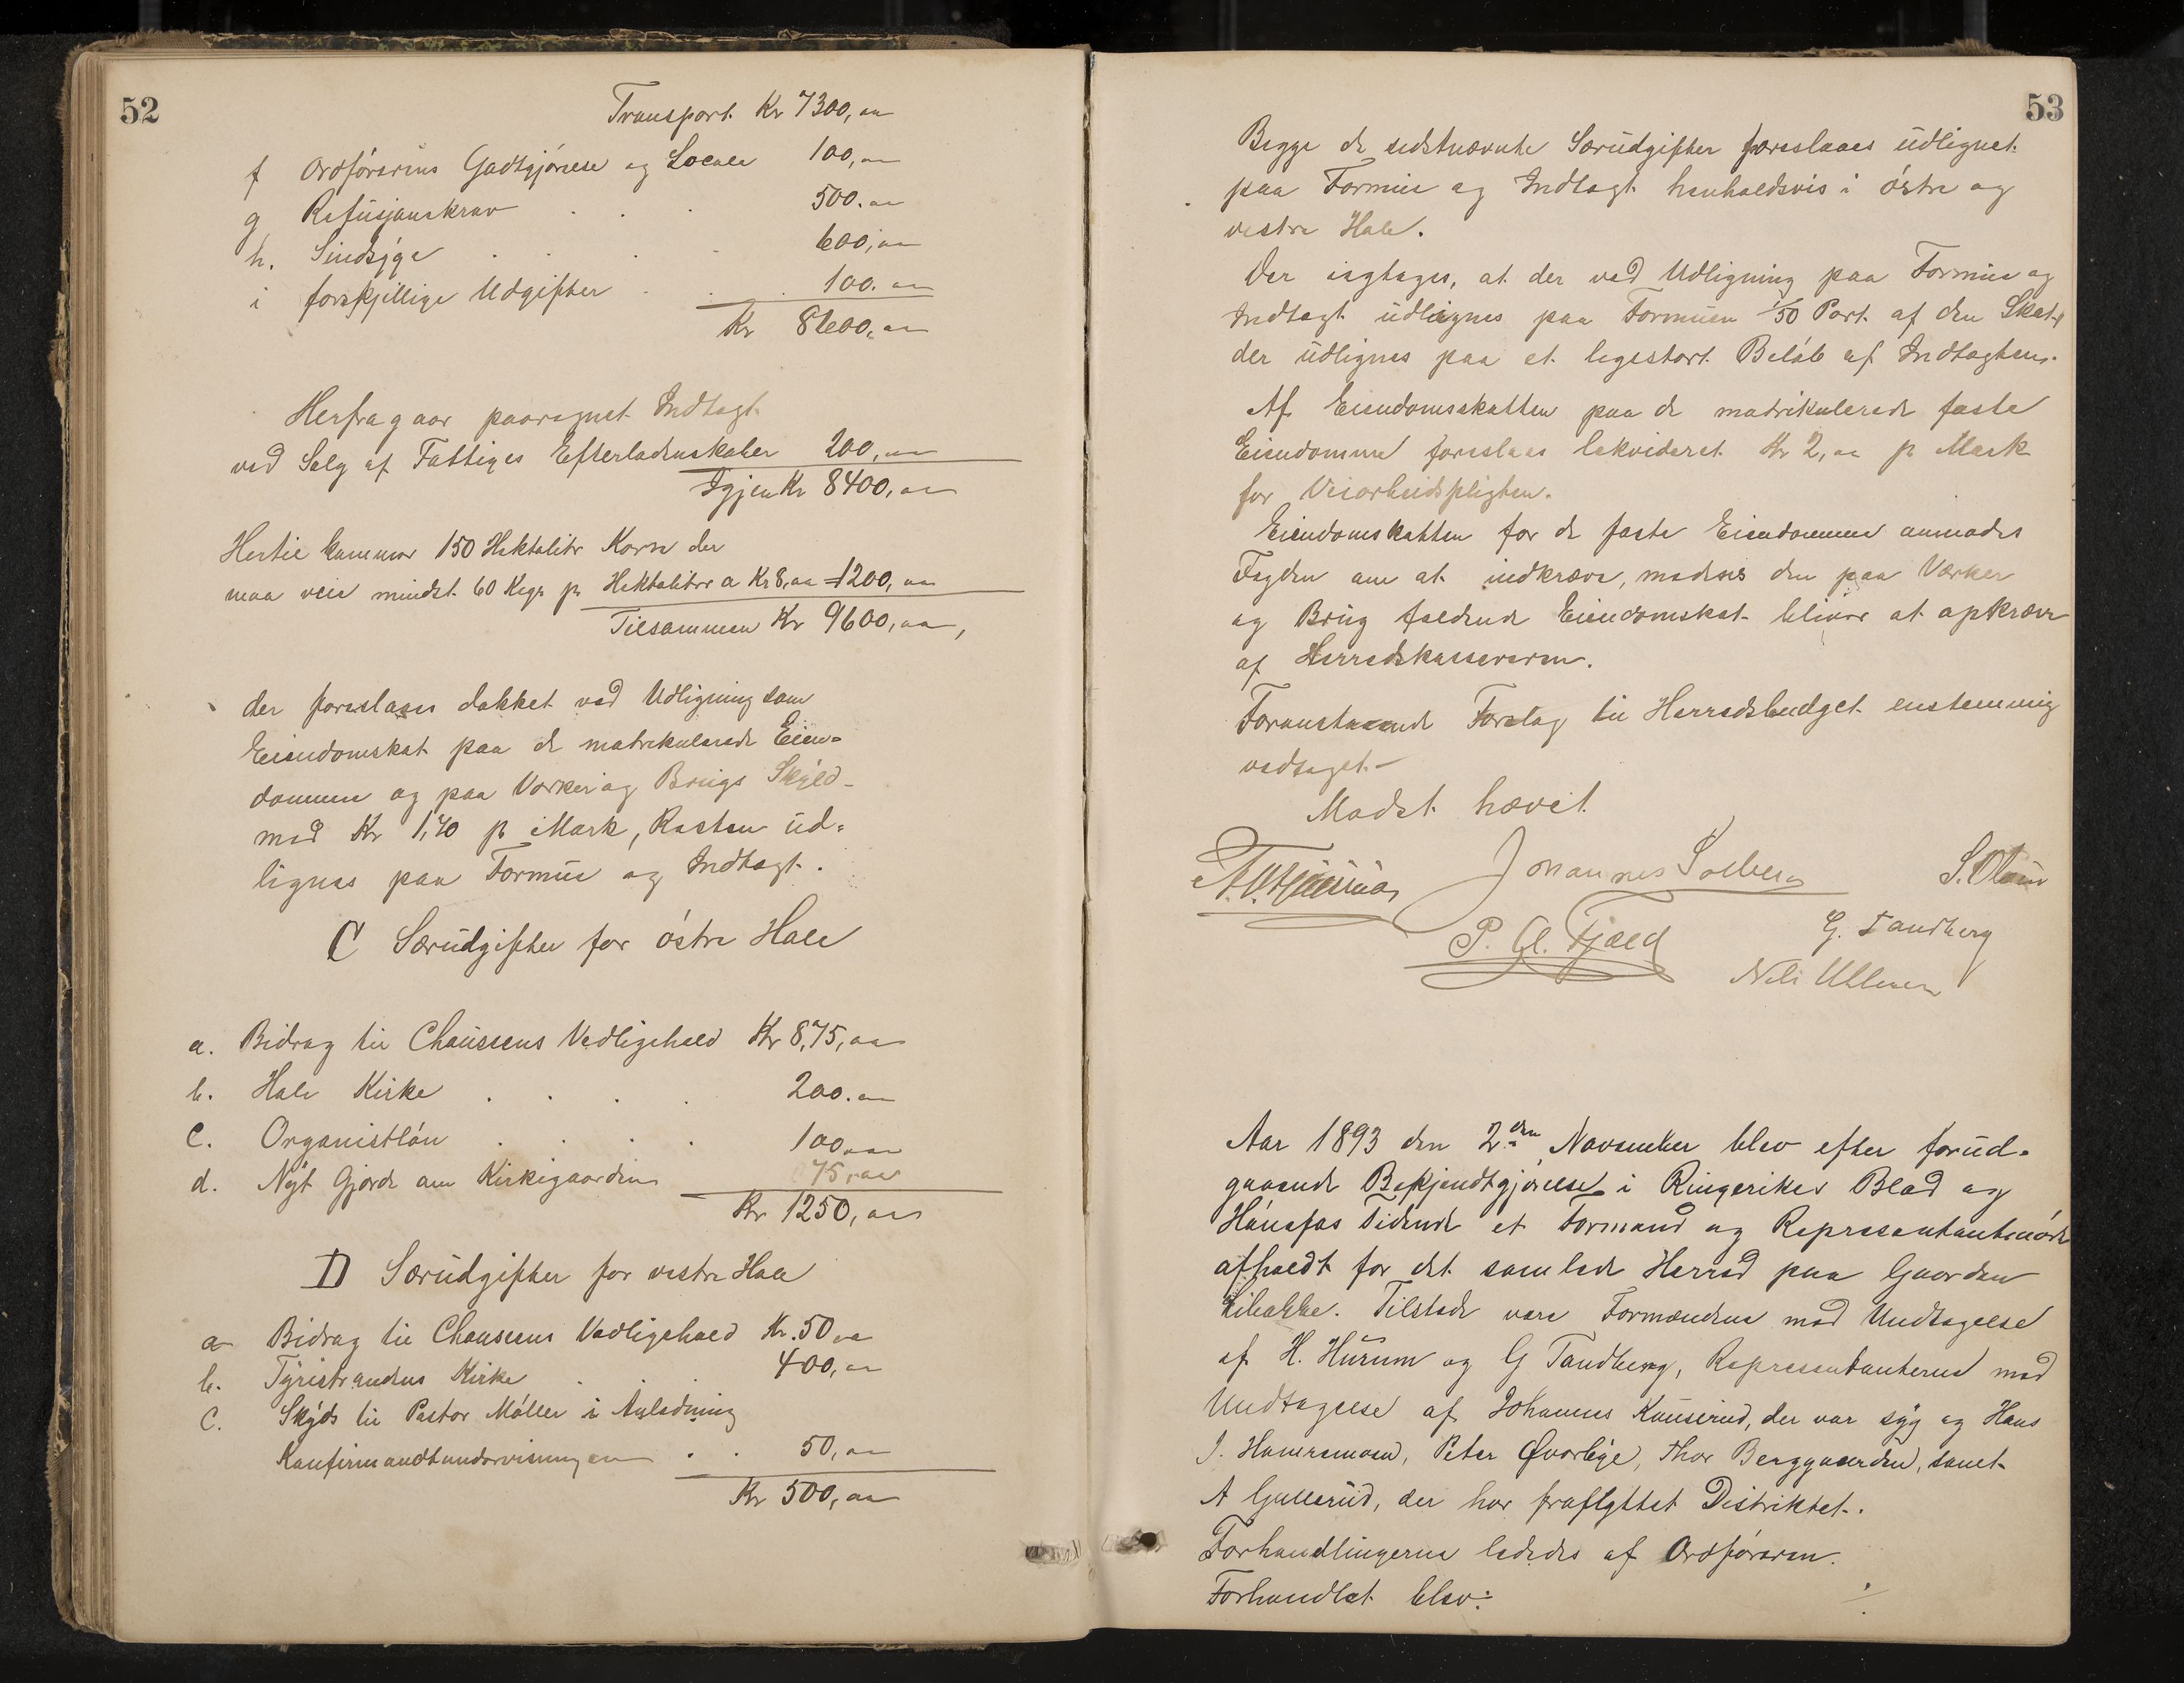 52
Transport Kr 7300,00
f Ordførerens Godtgjørelse og Locale 100,00
g Refusjonskrav . . . 500.00
h. Sindsyge . . . 600,00
i forskjellige Udgifter . . . 100.00
Kr 8600,00
Herfra gaar paaregnet Indtægt
ved Salg af Fattiges Efterladenskaber 200,00
Igjen Kr 8400,00
Hertil kommer 150 Hektoliter Korn der
maa veie mindst 60 Kegr pr Hektoliter a Kr 8,00 = 1200,00
Tilsammen Kr 9600,00,
der foreslaaes dækket ved Udligning som
Eiendomskat paa de matrikulerede Eien-
domme og paa Værker og Brugs Skyld
med Kr 1,70 pr Mark, Resten ud-
lignes paa Formue og Indtægt.
C Særudgifter for østre Hole
a. Bidrag til Chauseens Vedligehold Kr 875,00
b. Hole Kirke . . . . 200.00
C. Organistløn . . . . 100,00
d. Nyt Gjærde om Kirkegaarden 75,00
Kr 1250,00
D Særudgifter for vestre Hole
a Bidrag til Chauseens Vedligehold Kr. 50,00
b. Tyristrandens Kirke . . . 400,00
C. Skyds til Pastor Møller i Anledning
Konfirmandtundervisningen . . 50,00
Kr 500,00
53
Begge de sidstnævnte Særudgifter foreslaaes udlignet
paa Formue og Indtægt henholdsvis i østre og
vestre Hole.
Der iagtages, at der ved Udligning paa Formue og
Indtægt udlignes paa Formuen 1/50 Part af den Skat,
der udlignes paa et ligestort Beløb af Indtægten.
Af Eiendomsskatten paa de matrikulerede faste
Eiendomme foreslaaes lekvideret Kr 2,00 pr Mark
for Veiarbeidspligten.
Eiendomskatten for de faste Eiendomme anmodes
Fogden om at indkræve, medens den paa Værker
og Brug faldende Eiendomskat bliver at opkræve
af Herredskassereren.
Foranstaaende Forslag til Herredsbudget enstemmig
vedtaget.—
Mødet hævet.
Johannes Solberg
P. Gl. Fjeld
G. Tandberg
Nils Uhlesen
Aar 1893 den 2den November blev efter forud-
gaaende Bekjendtgjørelse i Ringerikes Blad og
Hønefos Tidende et Formand og Representantmøde
afholdt for det samlede Herred paa Gaarden
Libakke. Tilstede vare Formændene med Undtagelse
af H. Hurum og G Tandberg, Representanterne med
Undtagelse af Johannes Knuserud, der var syg og Hans
J. Hamremoen, Peter Øverbye, Thor Berggaarden, samt
A Gullerud, der har fraflyttet Distriktet.
Forhandlingerne lededes af Ordføreren.
Forhandlet blev: